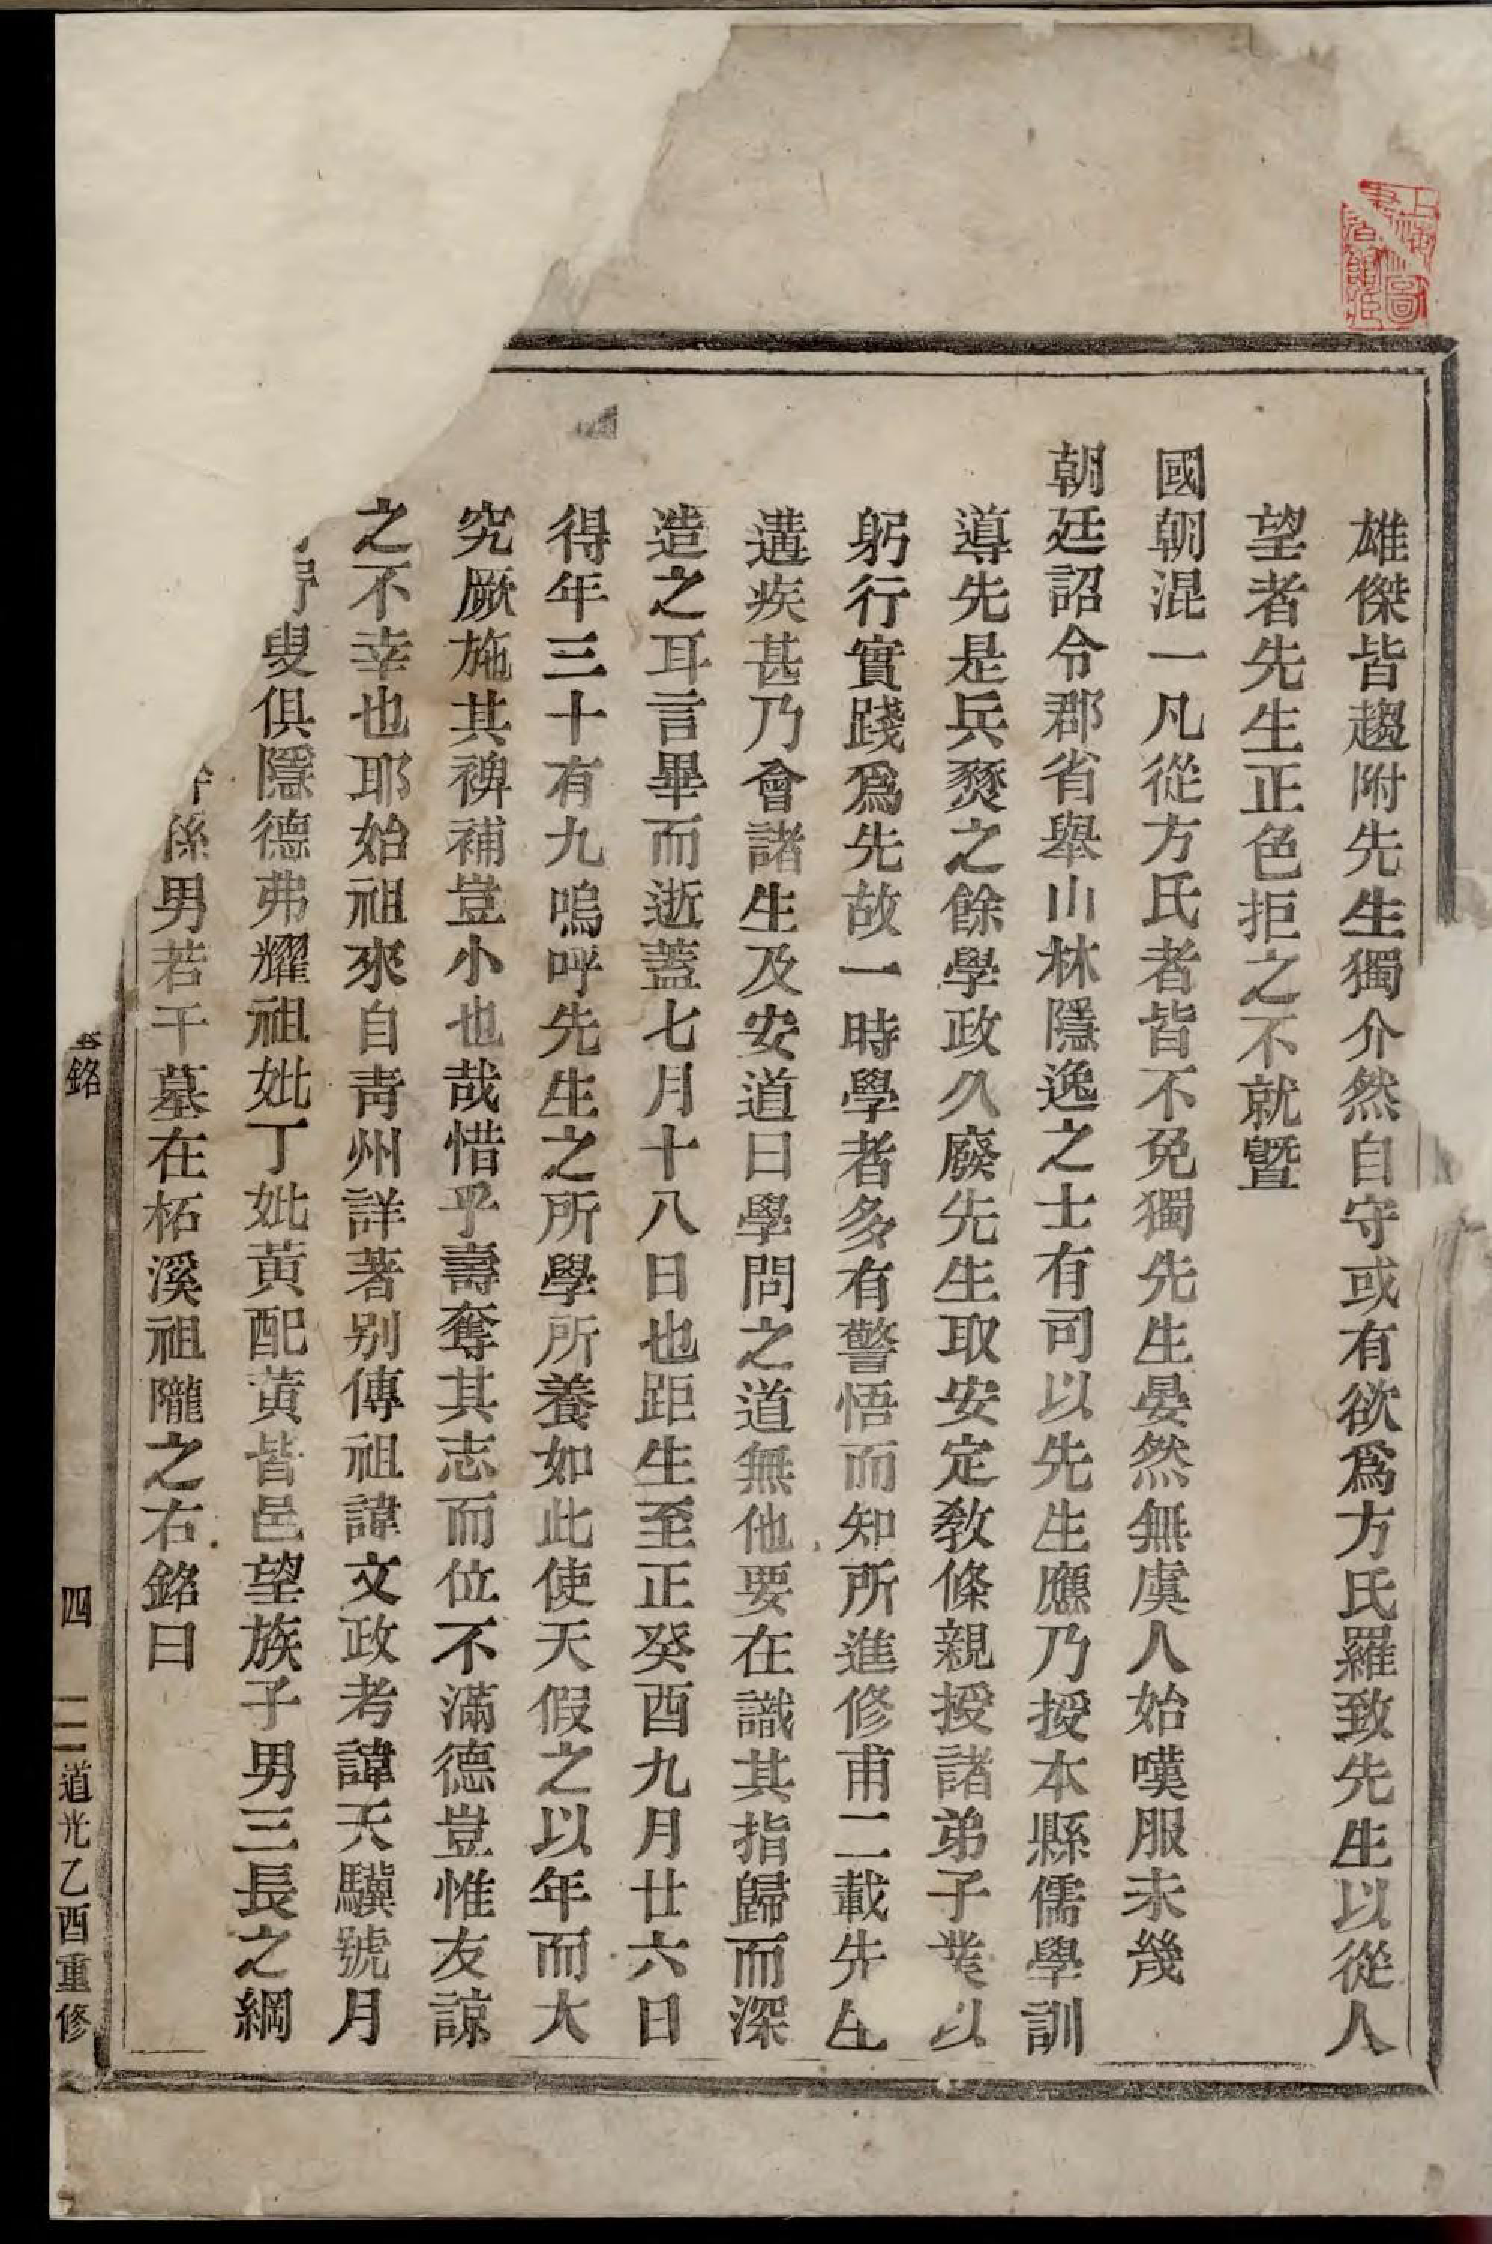 雄傑皆趨附先生獨介然自守或有欲爲方氏羅致先生以從人
望者先生正色拒之不就暨
國朝混一凡從方氏者皆不免獨先生晏然無虞人始嘆服未幾
朝廷詔令郡省舉山林隱逸之士有司以先生應乃授本縣儒學訓
導先是兵燹之餘學政久廢先生取安定敎條親授諸弟子業以
躬行實踐爲先故一時學者多有警悟而知所進修甫二載先生
遘疾甚乃會諸生及安道曰學問之道無他要在識其指歸而深
造之耳言畢而逝蓋七月十八日也距生至正癸酉九月廿六日
得年三十有九嗚呼先生之所學所養如此使天假之以年而大
究厥施其裨補豈小也哉惜乎壽奪其志而位不滿德豈惟友諒
之不幸也耶始祖來自靑州詳著别傳祖諱文政考諱天驥號月
叟俱隱德弗耀祖妣丁妣黃配黃皆邑望族子男三長之綱
係男若干墓在柘溪祖隴之右銘曰
銘
四
道光乙酉重修
上海圖書館藏